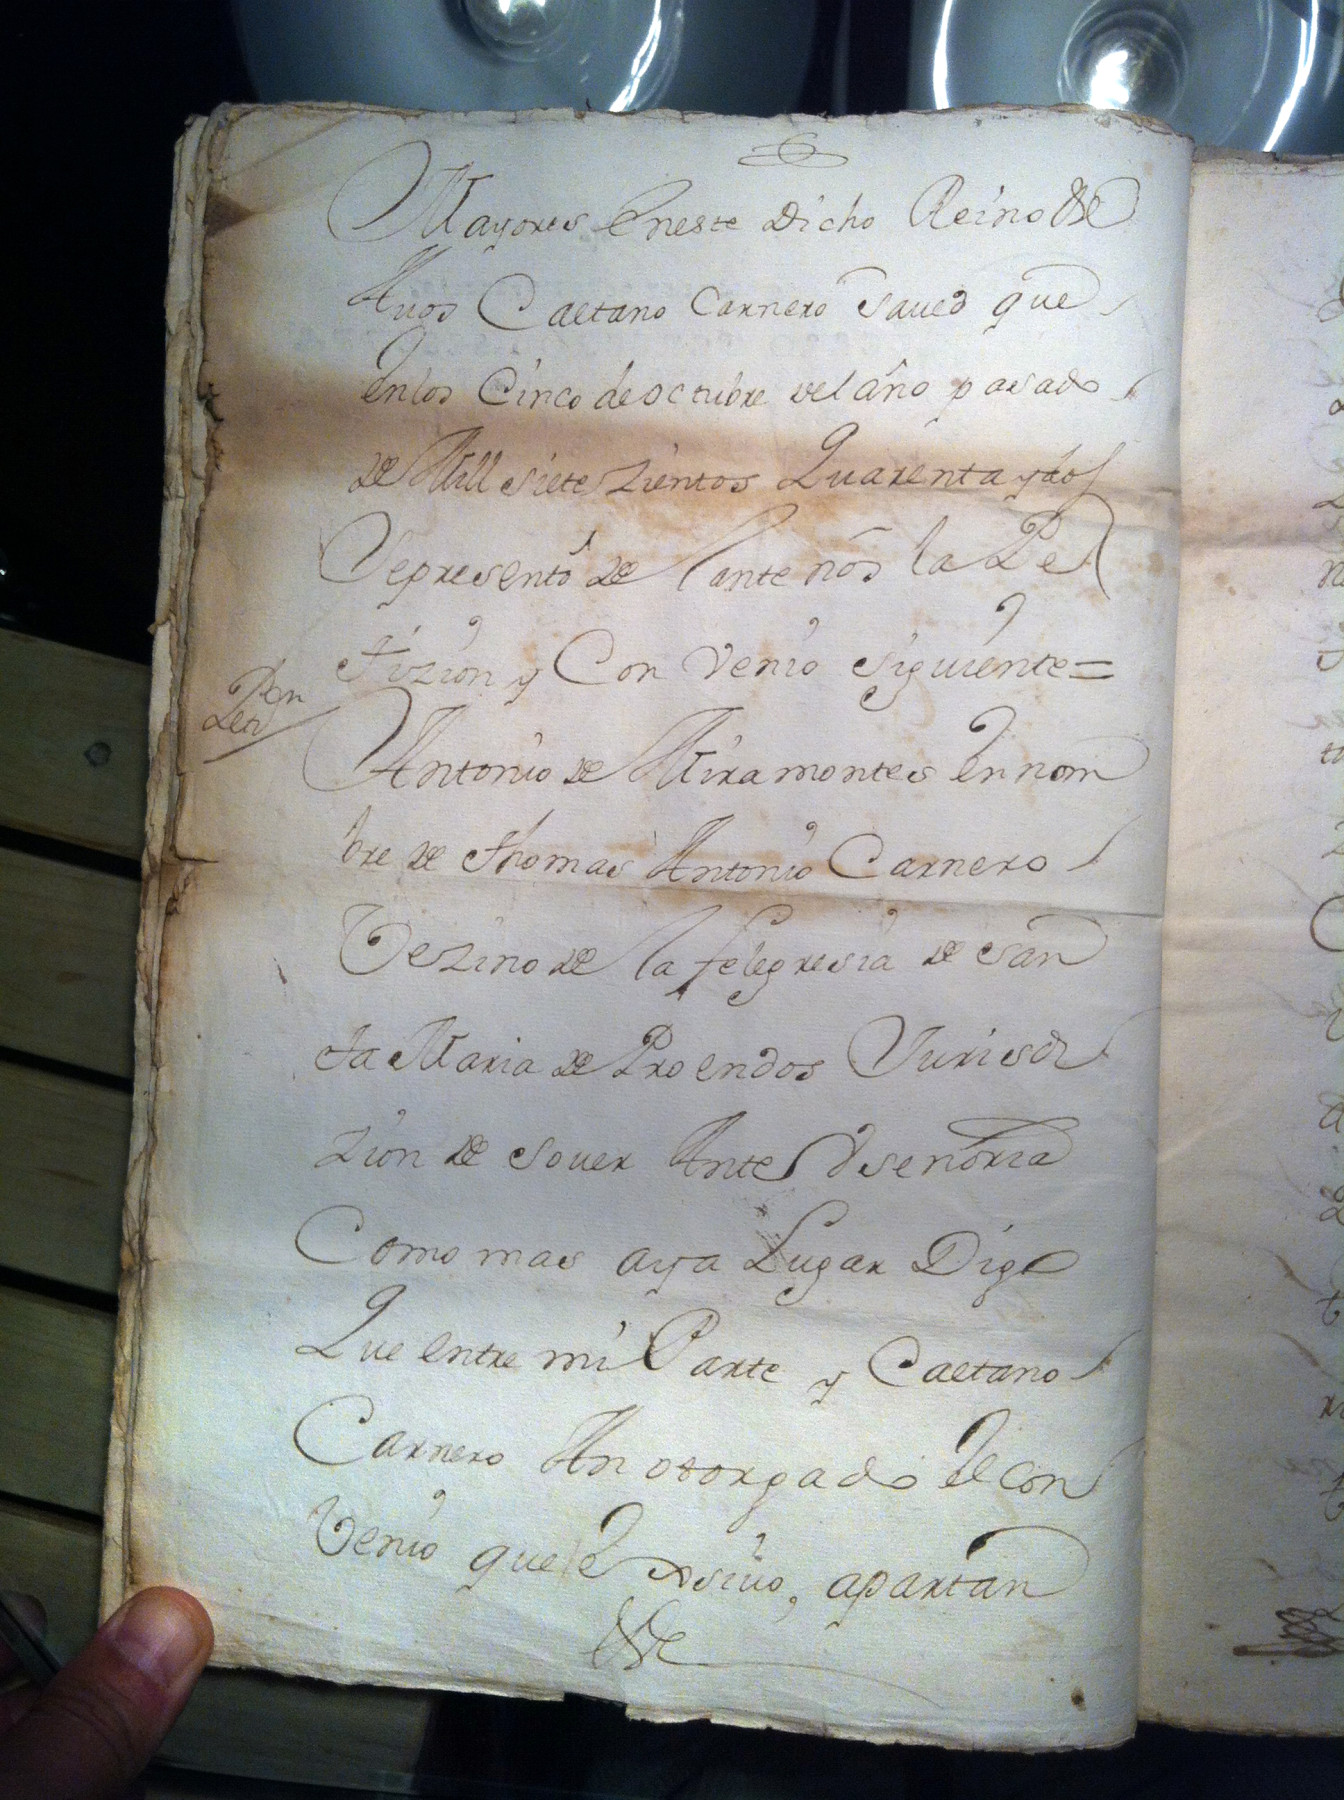 Mayores Eneste Dicho Reino &c
Avos Caetano Carnero saued que
Enlos Cinco de octubre del año pasado
de Mill siete zientos Quarenta y dos
Sepresentó de lante nós la Pe
tizion y Con Venio siguiente =
Antonio de Miramontes En nom
bre de thomas Antonio Carnero
Vezino de la felegresia de San
ta Maria de Proendos Jurisdi
zion de Sover Ante V senoria
Como mas aya Lugar Digo
Que entre mi Parte y Caetano
Carnero An otorgado El con
Venio que, apartan